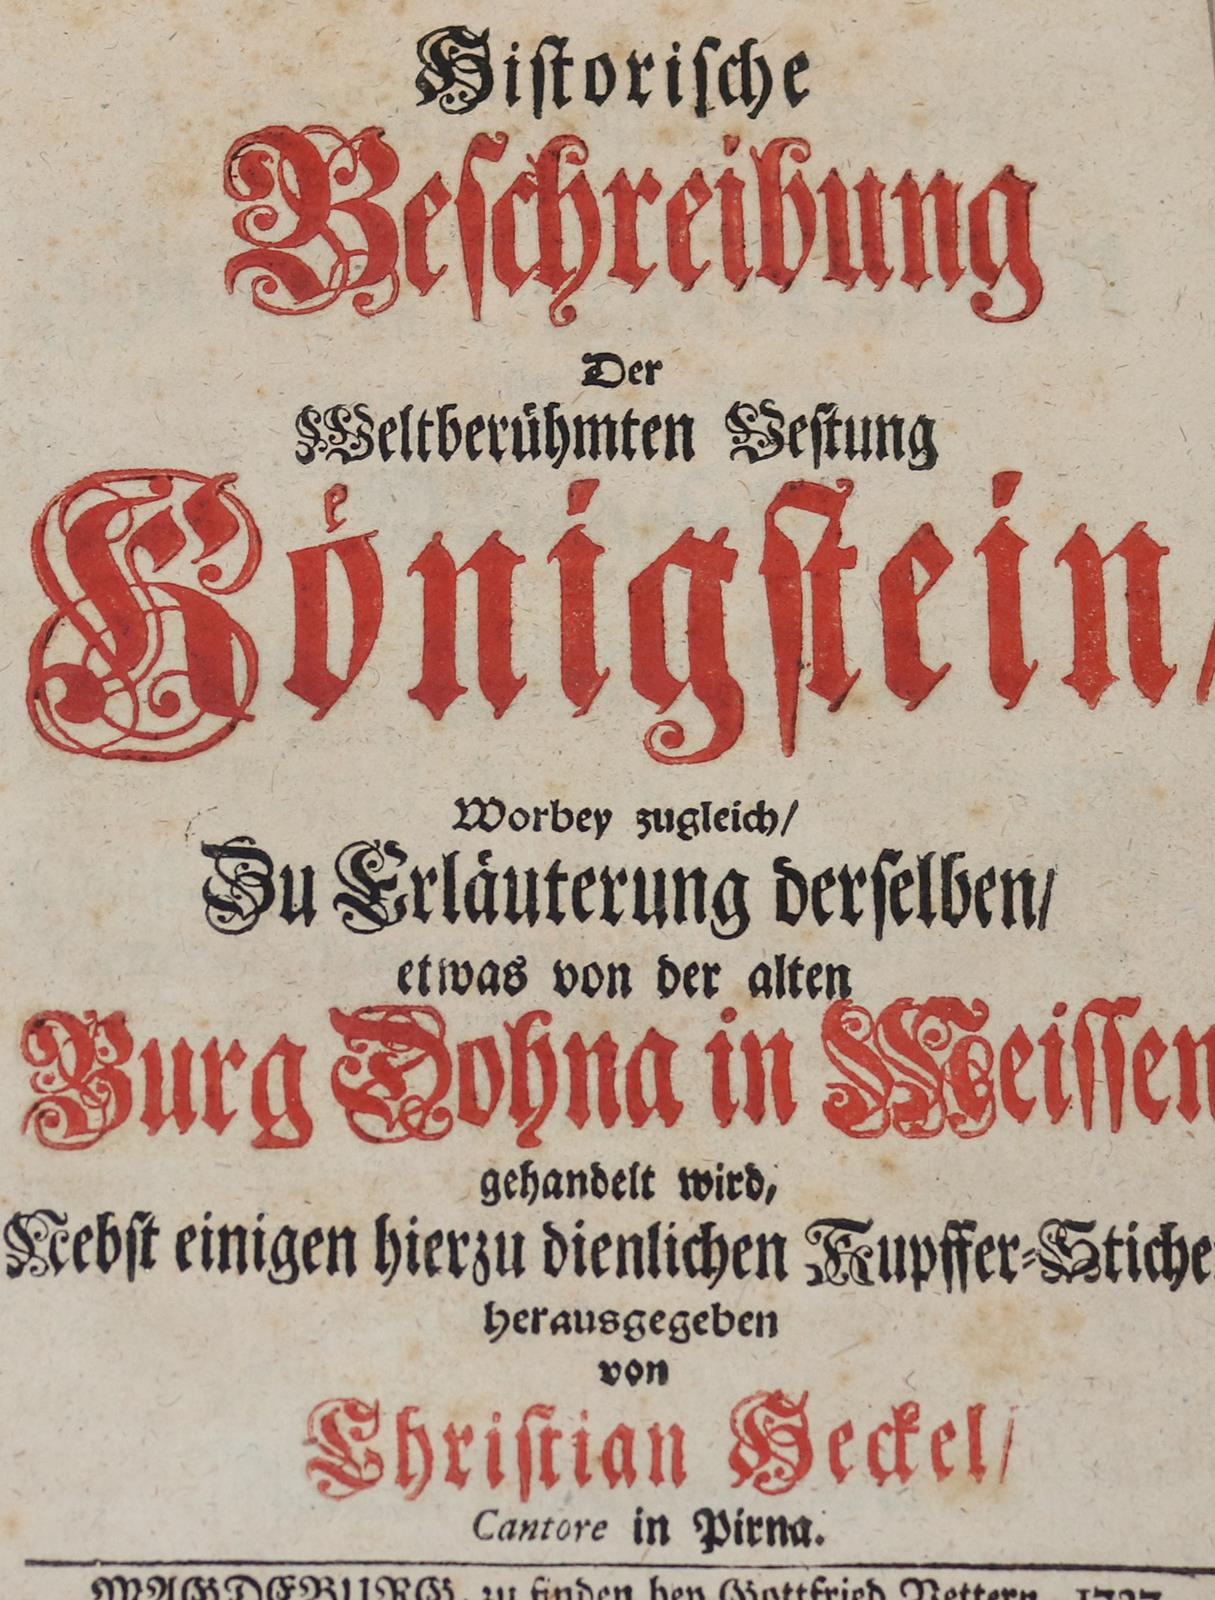 Historische
Beschreibung
Der
Weltberühmten Vestung
Koͤnigstein/
Worbey zugleich/
Zu Erläuterung derselben/
etwas von der alten
Burg Dohna in Meissen
gehandelt wird,
Nebst einigen hierzu dienlichen Kupffer-Stiche
herausgegeben
von
Christian Heckel/
Cantore in Pirna.
MAGDEBURG, zu finden bey Gottfried Vettern, 1737